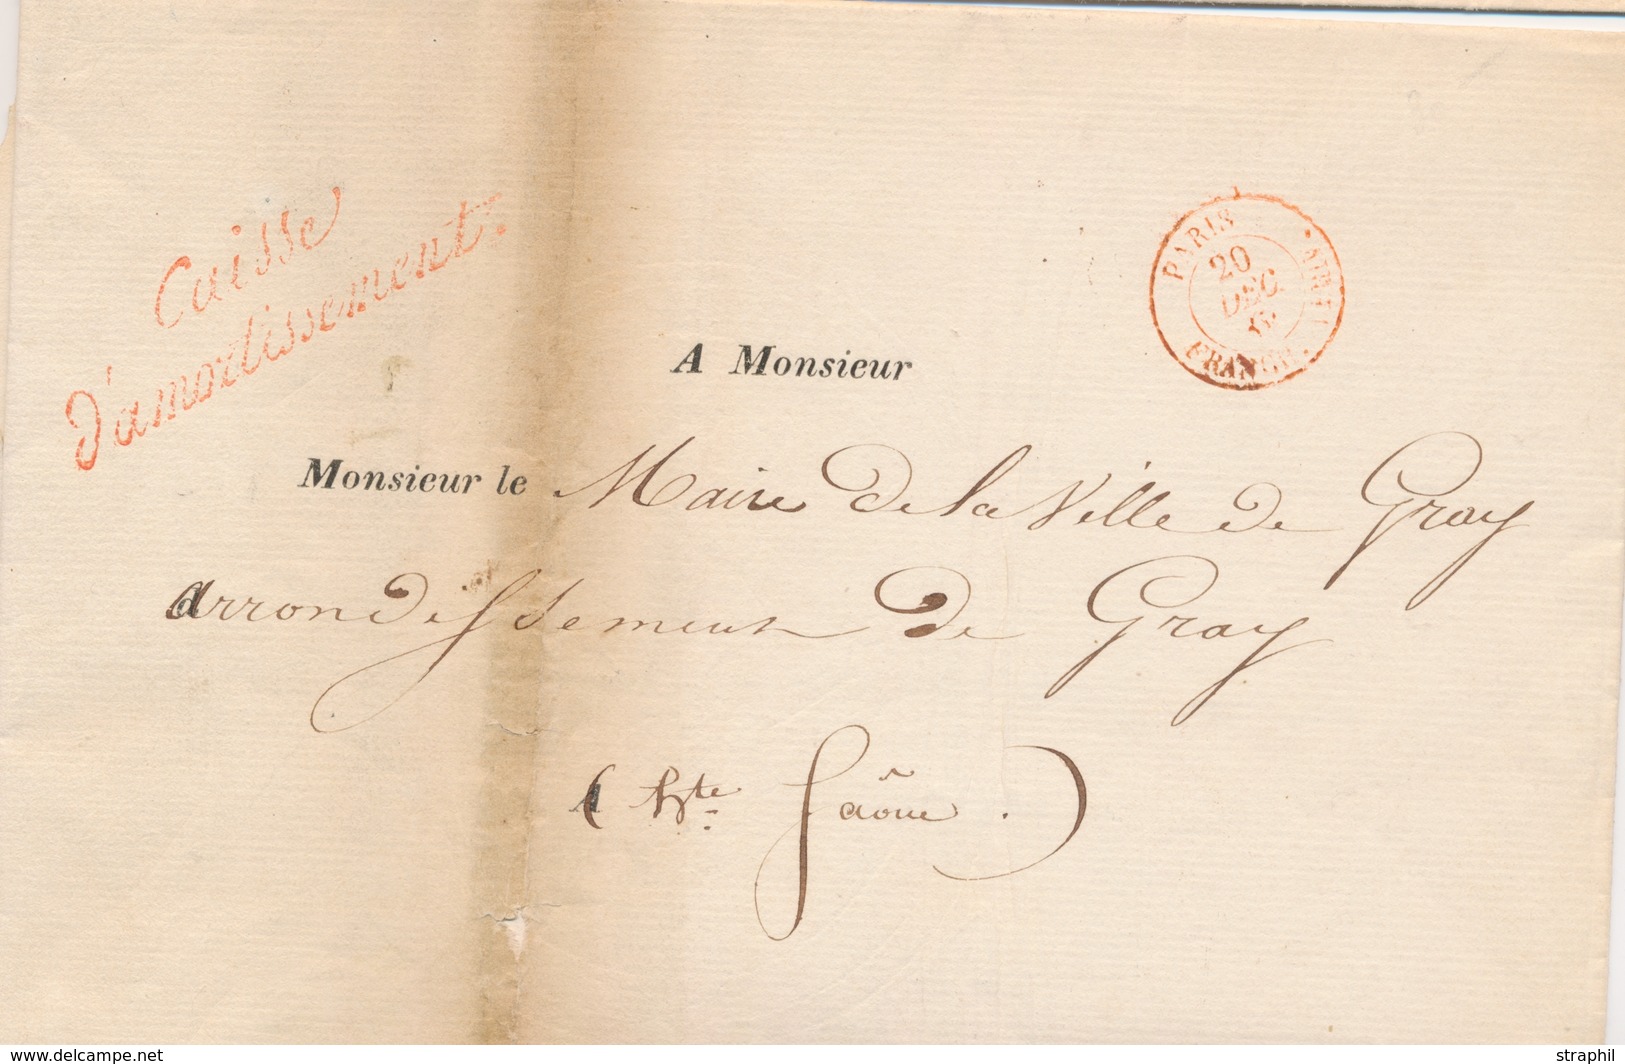 Caisse
d'amortissement.
PARIS
20
DEC.
FRANCE.
A Monsieur
Monsieur le Maire de la Ville de Gray
arrondissement de Gray
A
( hte Saône . )
delcampe.net
straphil